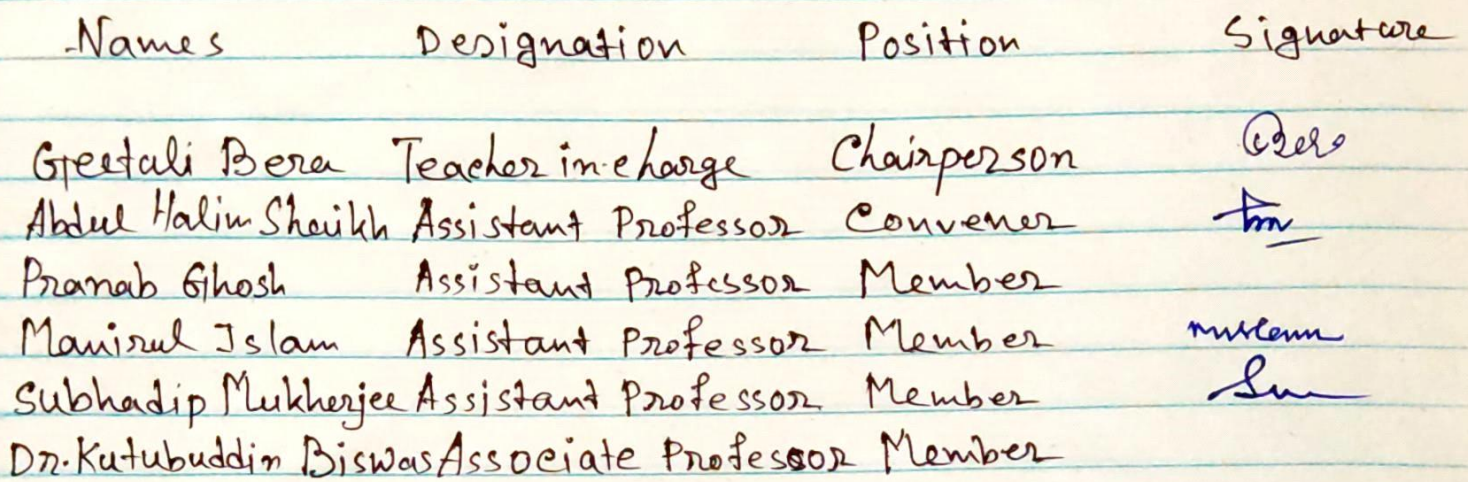 Names Designation Position Signature
Geetali Bera Teacher in-charge Chairperson Bera
Abdul Halim Shaikh Assistant Professor Convener
Pranab Ghosh Assistant Professor Member
Manirul Islam Assistant Professor Member
Subhadip Mukherjee Assistant Professor Member
Dr. Kutubuddin Biswas Associate Professor Member